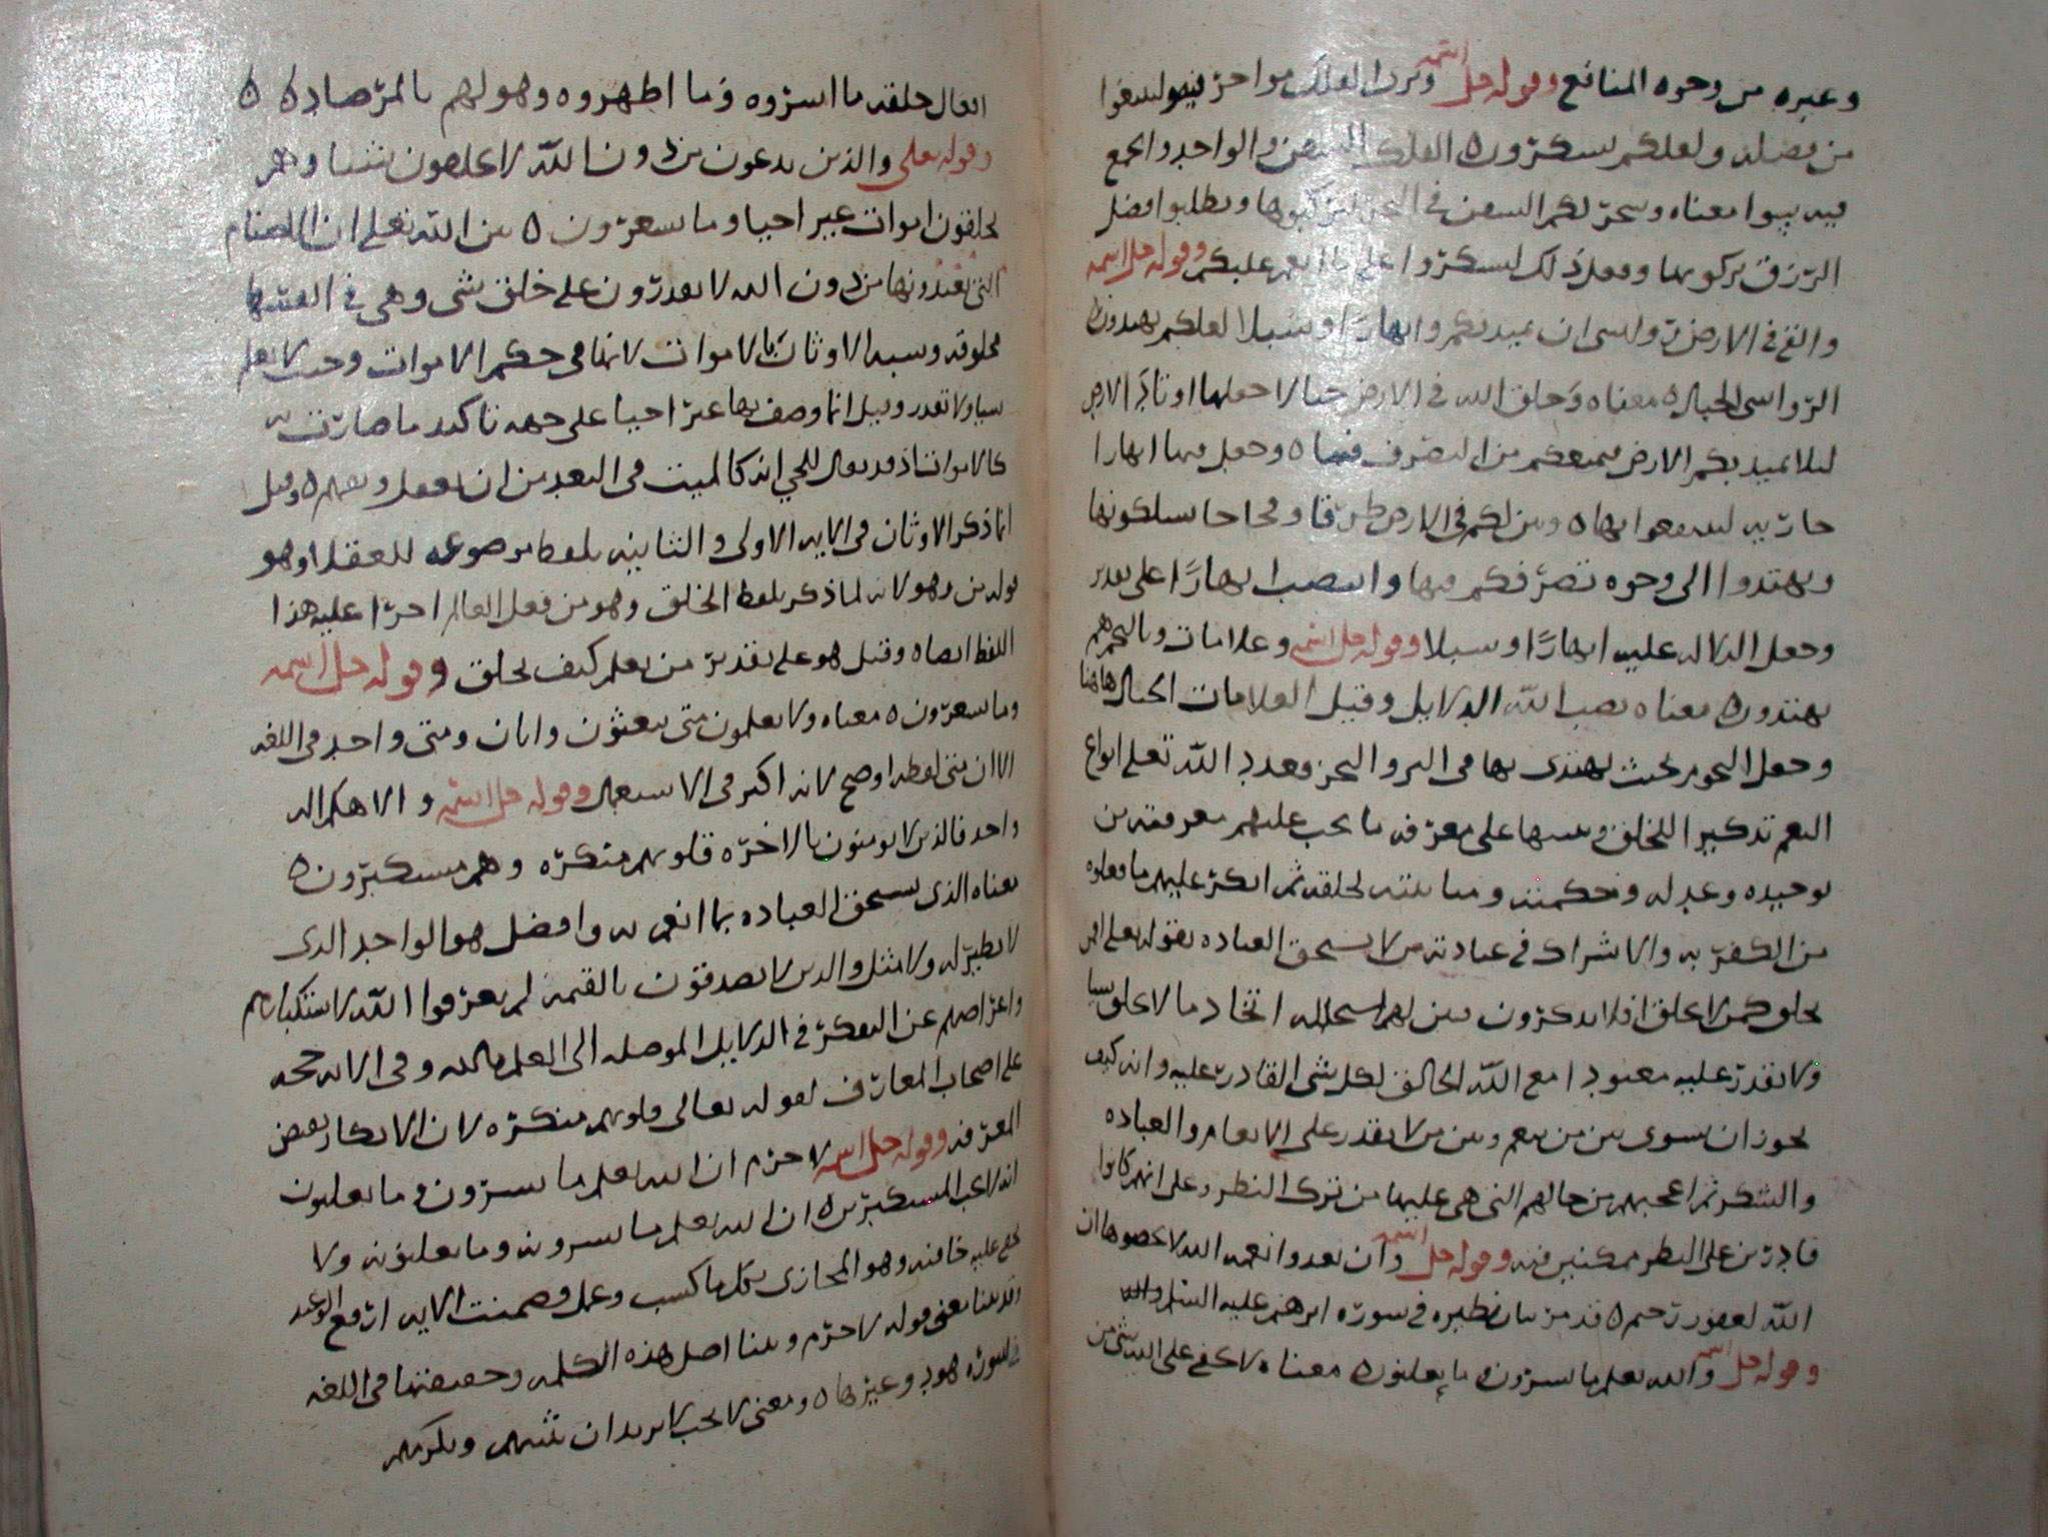 وغيره من وجوه المنافع وقوله جل اسمه وترى الفلك مواخر فيه ولتبتغوا
من فضله ولعلكم تشكرون ه الفلك السفن والواحد والجمع
فيه سوا معناه وسخر لكم السفن في البحر لتركبوها وتطلبوا فضل
الرزق بركوبها وفعل ذلك لتشكروا على ما انعم عليكم وقوله جل اسمه
والقى في الارض رواسي ان تميد بكم وانهارا وسبلا لعلكم تهتدون
الرواسي الجبال ه معناه وخلق الله في الارض جبالا جعلها اوتاد الارض
لئلا تميد بكم الارض فيمنعكم من التصرف فيها ه وجعل فيها انهارا
جارية لتنتفعوا بها ه وبين لكم في الارض طرقا وفجاجا تسلكونها
وتهتدوا الى وجوه تصرفكم فيها وانتصب انهارا على تقدير
وجعل الدلالة عليه انهارا وسبلا وقوله جل اسمه وعلامات وبالنجم هم
يهتدون ه معناه نصب الله الدلايل وقيل العلامات الجبال هاهنا
وجعل النجوم بحيث يهتدى بها في البر والبحر فعدد الله تعلى انواع
النعم تذكيرا للخلق وتنبيها على معرفة ما يجب عليهم معرفته من
توحيده وعدله وحكمته ومنا مننه لخلقه ثم انكر عليهم ما فعلوه
من الكفر به والاشراك في عبادته من لا يستحق العباده بقوله تعلى افمن
يخلق كمن لا يخلق افلا تذكرون فبين لهم استحاله اتخاذ ما لا يخلق شيا
ولا يقدر عليه معبودا مع الله الخالق لكل شي القادر عليه وانه كيف
يجوز ان يسوى بين من ينعم وبين من لا يقدر على الانعام والعباده
والشكر ثم اعجبهم من حالهم التي هي عليها من ترك النظر وعلى انهم كانوا
قادرين على النظر ممكنين فيه وقوله جل اسمه وان تعدوا نعمه الله لا تحصوها ان
الله لغفور رحيم ه قد مر بيان نظيره في سورة ابرهيم عليه السلم
وقوله جل اسمه والله يعلم ما تسرون وما يعلنون ه معناه لا يخفى على الله شي من
افعال خلقه ما اسروه وما اظهروه وهو لهم بالمرصاد ه
وقوله تعلى والذين يدعون من دون الله لا يخلقون شيا وهم
يخلقون اموات غير احيا وما يشعرون ه بين الله تعلى ان الاصنام
التي يعبدونها من دون الله لا يقدرون على خلق شي وهي في انفسها
مخلوقة وشبه الاوثان بالاموات لانها في حكم الاموات وحيث لا تعلم
شيا ولا تقدر وقيل انما وصفها بغير احيا على جهه تاكيد ما صارت به
كالاموات اذ قد يقال للحي انه كالميت في البعد من ان يعقل ويفهم ه وقيل
انما ذكر الاوثان في الايه الاولى والثانيه بلفظ موضوعه للعقلا وهو
قوله من وهو لانه لما ذكر بلفظ الخلق وهو من فعل العالم اجرا عليه هذا
اللفظ ايضا ه وقيل هو على تقدير من يعلم كيف يخلق وقوله جل اسمه
وما يشعرون ه معناه ولا يعلمون متى يبعثون وايان ومتى واحد في اللغه
الا ان متى لفظه اوضح لانه اكثر في الاستعمال وقوله جل اسمه والاهكم اله
واحد فالذين لا يومنون بالاخره قلوبهم منكره وهم مستكبرون ه
معناه الذي يستحق العباده بما انعم به وافضل هو الواحد الذي
لا نظير له ولا مثل والذين لا يصدقون بالقيمه لم يعرفوا الله لاستكبارهم
واعراضهم عن التفكر في الدلايل الموصله الى العلم بالله وفي الايه حجه
على اصحاب المعارف لقوله تعالى قلوبهم منكره لان الانكار نقيض
المعرفه وقوله جل اسمه لا جرم ان الله يعلم ما يسرون وما يعلنون
انه لا يحب المستكبرين ه ان الله يعلم ما يسرونه وما يعلنونه ولا
يخفى عليه خافيه وهو المجازي بكل ما كسب وعمل وضمنت الايه ارفع الوعيد
وقد بينا معنى قوله لا جرم وبينا اصل هذه الكلمه وحقيقتها في اللغه
في سوره هود وغيرها ه ومعنى لا يحب لا يريد ان يثيبهم ويكرمهم